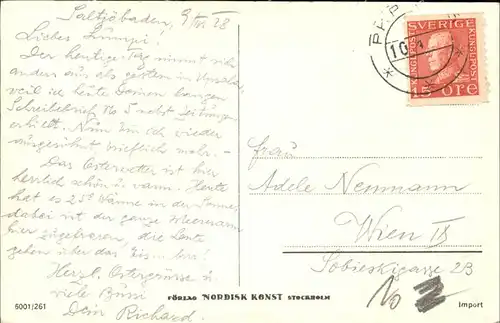 Saltsjöbaden, 9/IV. 28
Liebes
Der heutige Tag nimmt sich
anders aus als gestern in
weil ich heute Deinen langen
Schreibebrief No 5 nebst Zeitungen
erhielt. Nun bin ich wieder
ausgesöhnt brieflich mehr. –
Das Osterwetter ist hier
herrlich schön u. warm. Heute
hat es 25° Wärme in der Sonne,
dabei ist der ganze Meeresarm
hier zugefroren, die Leute
gehen über das Eis
Herzl. Ostergrüsse u
viele Bussi
Dein Richard.
SVERIGE
KUNGL. POST
KUNGL. POST
15 ÖRE
Frau
Adele Neumann
Wien IX
Sobieskigasse 23
10
6001/261
FÖRLAG NORDISK KONST STOCKHOLM
Import